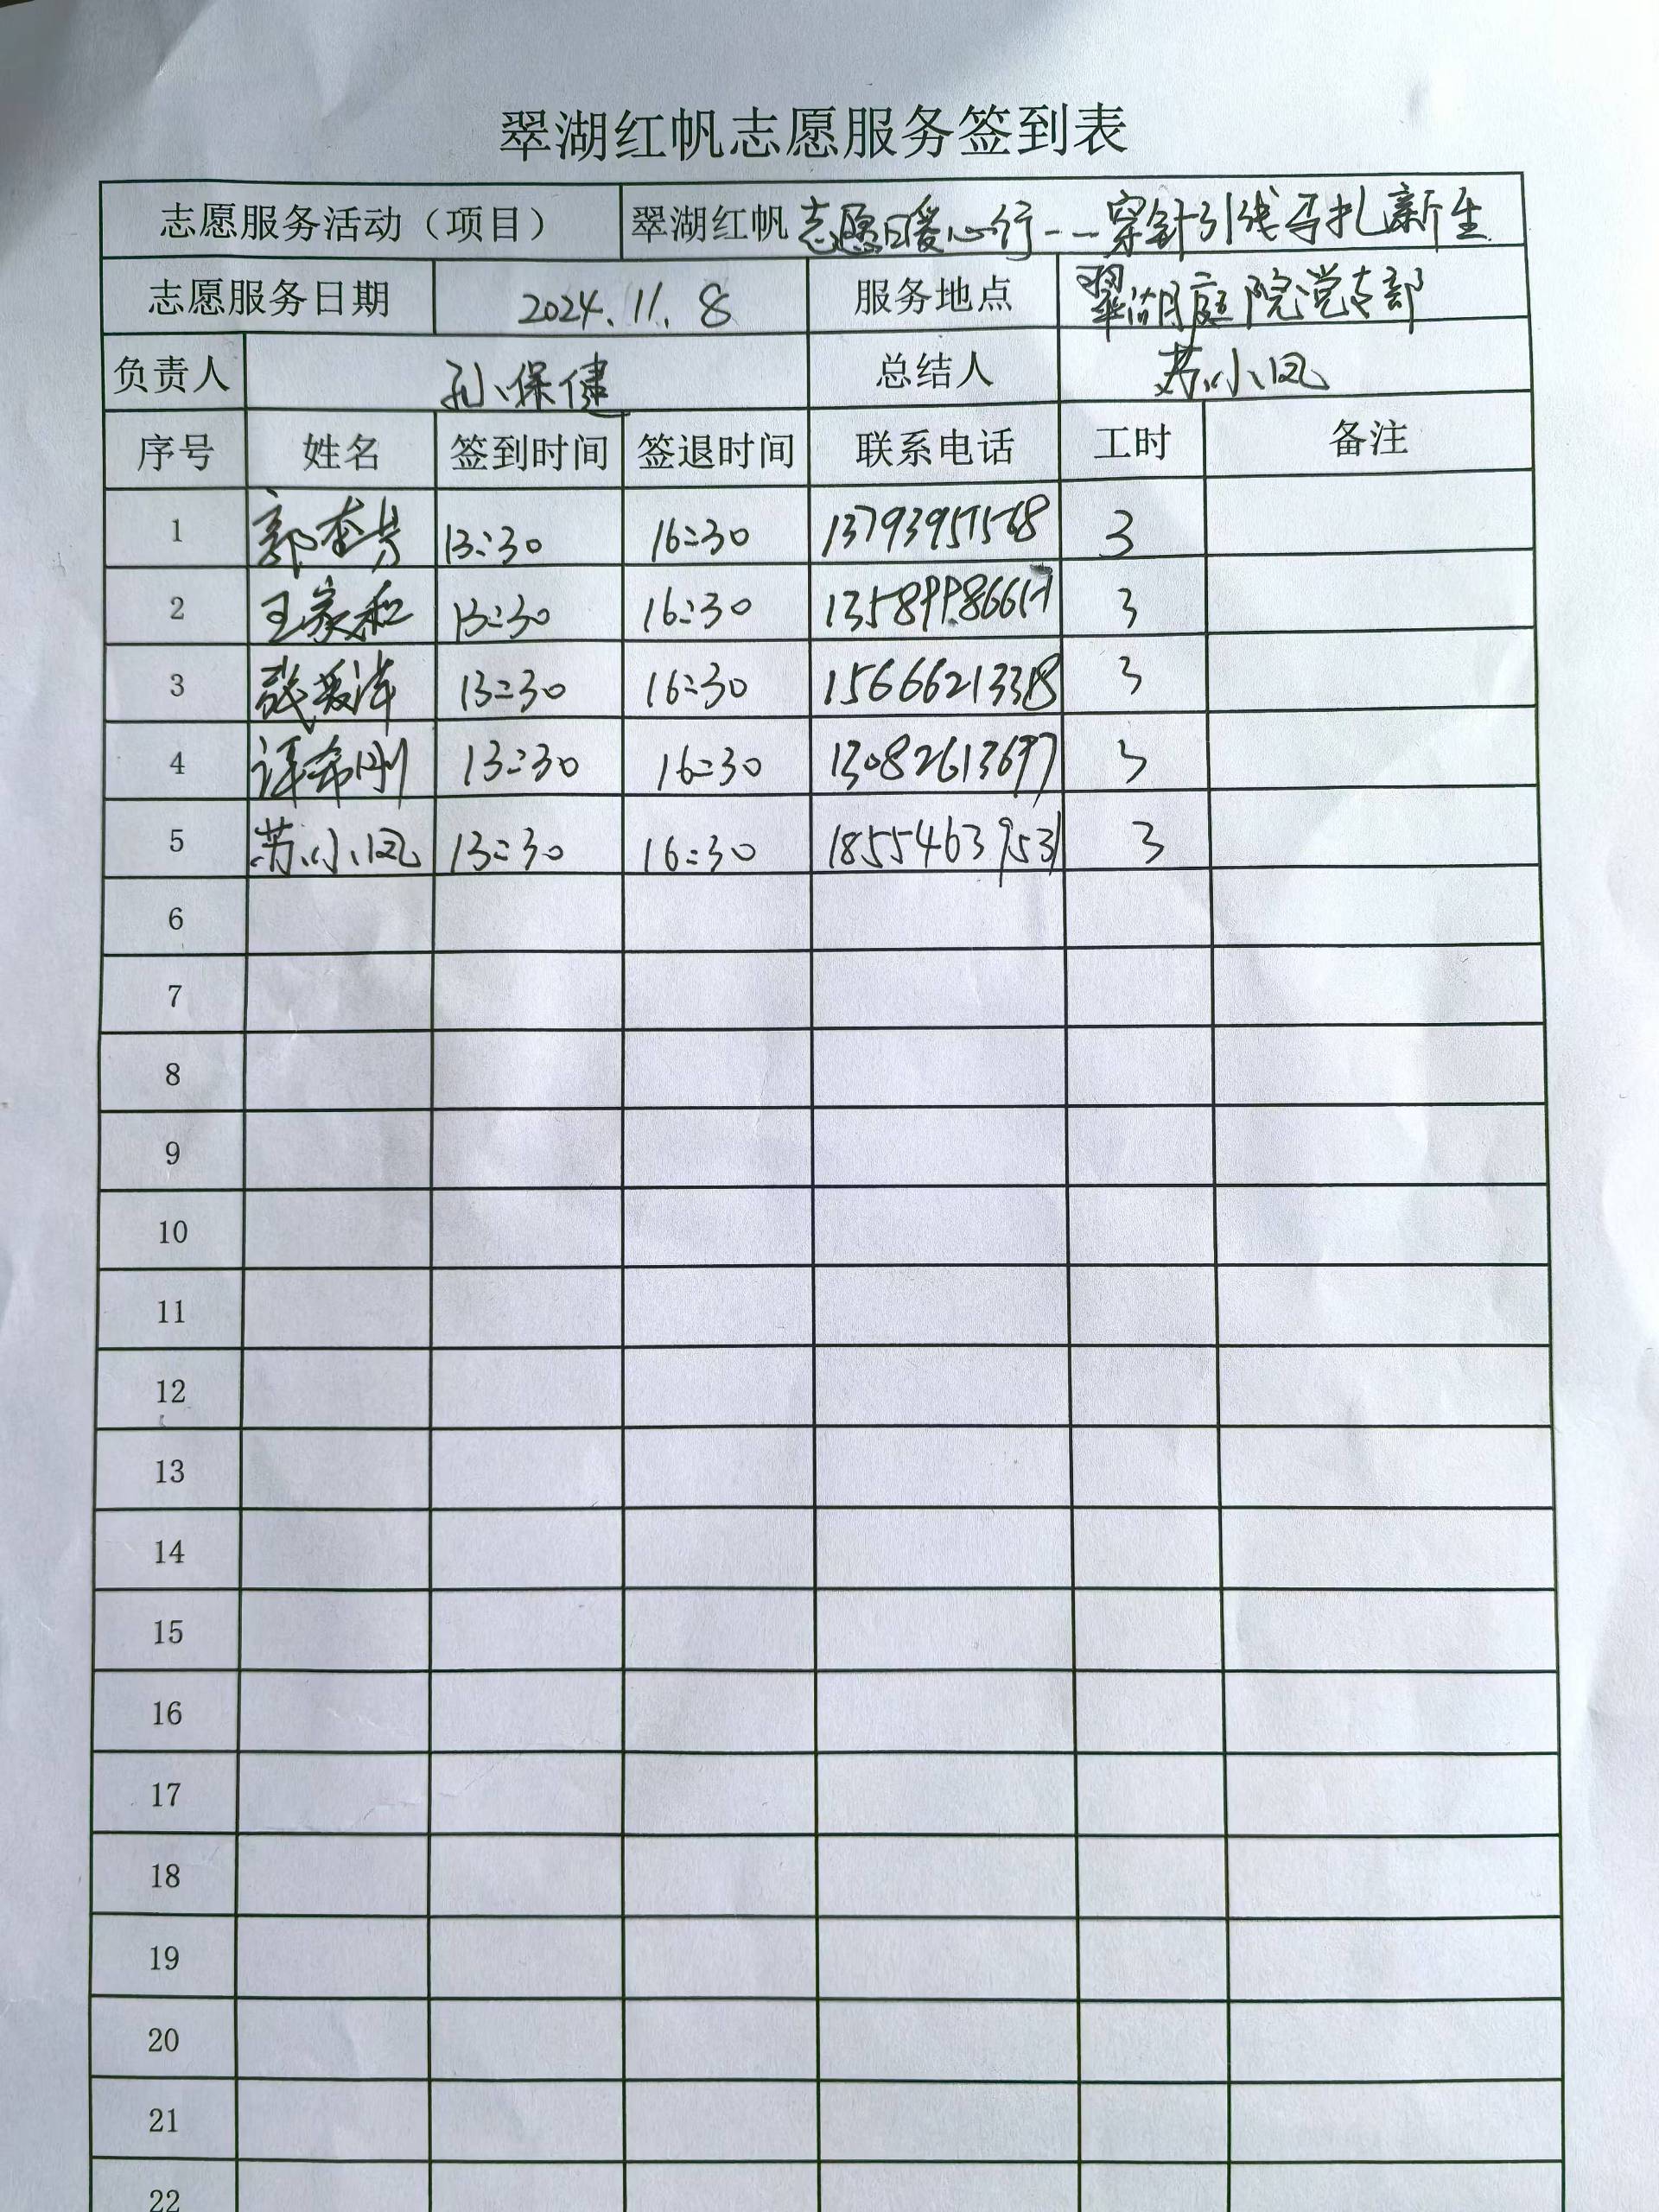 翠湖红帆志愿服务签到表
志愿服务活动（项目） 翠湖红帆 志愿暖心行--穿针引线 马扎新生
志愿服务日期 2024.11.8 服务地点 翠湖庭院党支部
负责人 孙保健 总结人 苏小凤
序号 姓名 签到时间 签退时间 联系电话 工时 备注
1 郭春芳 13:30 16:30 3
2 王家和 13:30 16:30 3
3 张爱洋 13:30 16:30 15666213318 3
4 许希刚 13:30 16:30 13082613697 3
5 苏小凤 13:30 16:30 18554639531 3
6
7
8
9
10
11
12
13
14
15
16
17
18
19
20
21
22